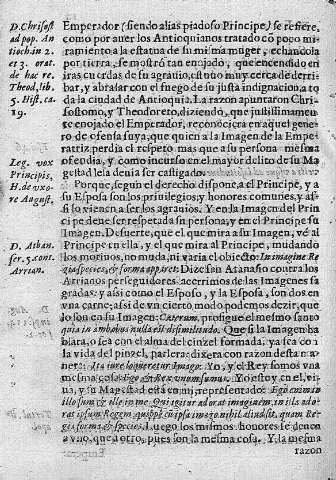 D. Chrisost. ad pop. An tioch in 2. et 3. orat. de hac re, Theod, lib. 5. Hist. ca. 19.
Emperador (siendo alias piadoso Principe) se refiere,
como por auer los Antioquianos tratado cõ poco mi
ramiento a la estatua de su misma muger, echandola
por tierra, se mostrò tan enojado, que encendido en
iras cuerdas de su agrauio, estuuo muy cerca de derri-
bar, y abrasar con el fuego de su justa indignacion, a to
da la ciudad de Antioquia. La razon apuntaron Chry
sostomo, y Theodoreto, diziendo, que justissimamẽ
te enojado el Emperador, reconociera en aquel gene
ro de ofensa suya, que quien a la Imagen de la Empe
ratriz perdia el respeto, mas que a su persona mesma
ofendia, y como incurso en el mayor delito de su Ma
gestad lesa deuia ser castigado.
Leg. vox Principis, H. de vxo re August.
Porque, segun el derecho dispone, a el Principe, y a
su Esposa son los priuilegios, y honores comunes, y as-
si lo vienen a ser los agrauios. Y en la Imagen del Prin
cipe deue ser respetada su persona, y en el Principe su
Imagen. De suerte, que el que mira a su Imagen, vè al
D. Athan. ser. 5. cont. Arrian.
Principe en ella, y el que mira al Principe, mudando
los motiuos, no muda, ni varia el obiecto: In imagine Re
gia species, & forma apparet: Dize san Atanasio contra los
Arrianos perseguidores acerrimos de las Imagenes sa
gradas: y assi como el Esposo, y la Esposa, son dos en
vna carne; assi de vn cierto modo podemos dezir, que
lo son en su Imagen: Cæterum, prosigue el mesmo santo
quia in ambobus nulla est dissimilitudo. Que si la Imagen ha
blara, o sea con el alma del cinzel formada, ya sea con
la vida del pinzel, parlera: dixera con razon desta na-
tança: Ita iure loqueretur Imago. Yo, y el Rey somos vna
mesma cosa: Ego & Rex vnum sumus. Yo estoy en el, vi-
ua, y su Magestad està en mi, representado: Ego enim in
illo sum & ille in me. Qui igitur adorat imaginem, in illa ado-
rat ipsum Regem, quippè cùm ipsa imago, nihil aliud sit, quam Re
gis forma, & species: Luego los mismos honores se deuen
a vno, que a otro, pues son la mesma cosa. Y la mesma
razon